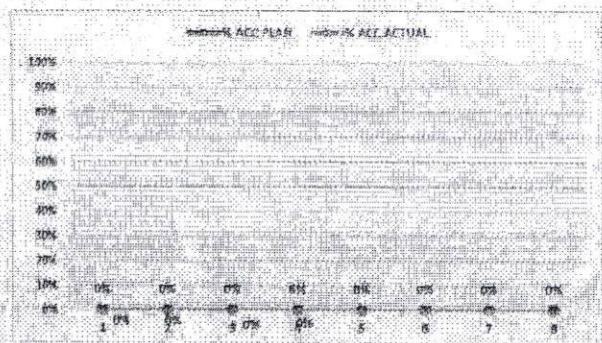 % ACC PLAN % ACC ACTUAL
100%
90%
80%
70%
60%
50%
40%
30%
20%
10%
0% 0% 0% 0% 0% 0% 0% 0%
0%
1 2 3 4 5 6 7 8
0% 0% 0% 0%